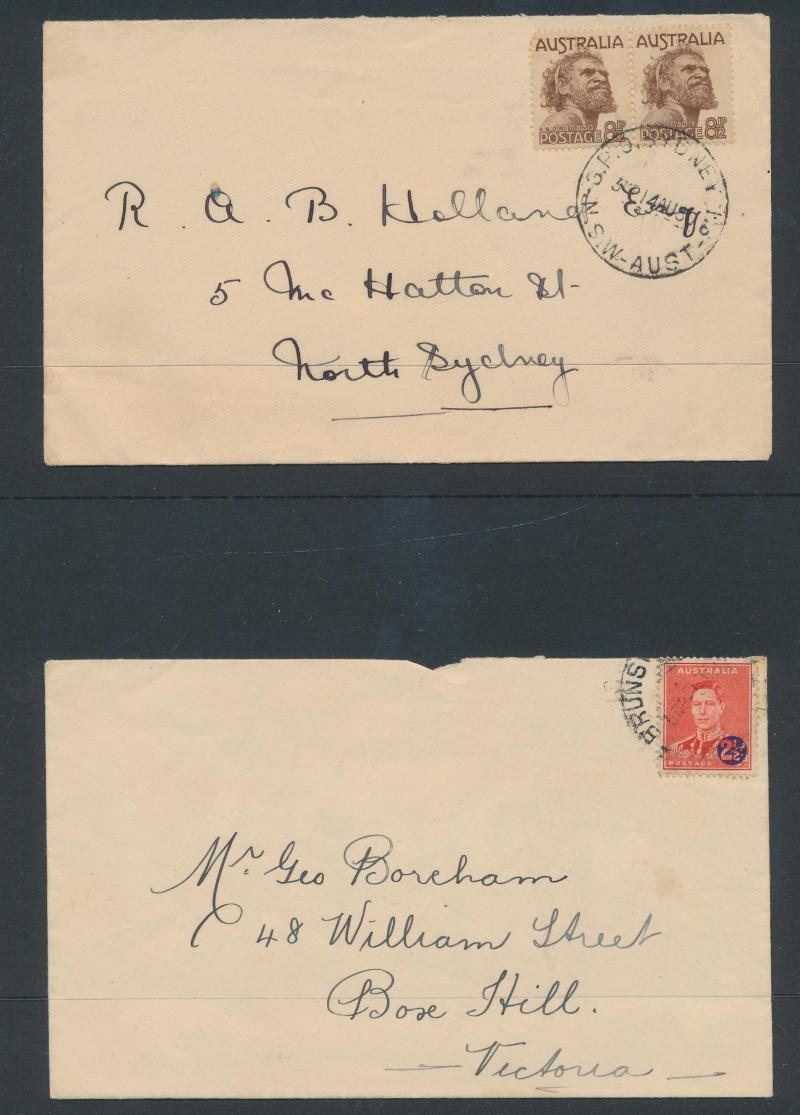 AUSTRALIA AUSTRALIA
ABORIGINE
POSTAGE 8½D POSTAGE 8½D
G.P.O. SYDNEY
14 AUG
N.S.W-AUST
R. A. B. Holland Esq
5 Mc Hatton St
North Sydney
BRUNSW
AUSTRALIA
POSTAGE
2½
Mr. Geo Boreham
48 William Street
Box Hill.
Victoria